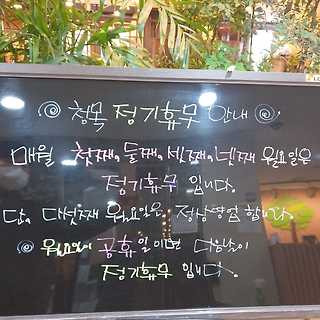 청목 정기휴무 안내
매월 첫째, 둘째, 셋째, 넷째 월요일은
정기휴무 입니다.
단, 다섯째 월요일은 정상영업 합니다.
월요일이 공휴일이면 다음날이
정기휴무 입니다.